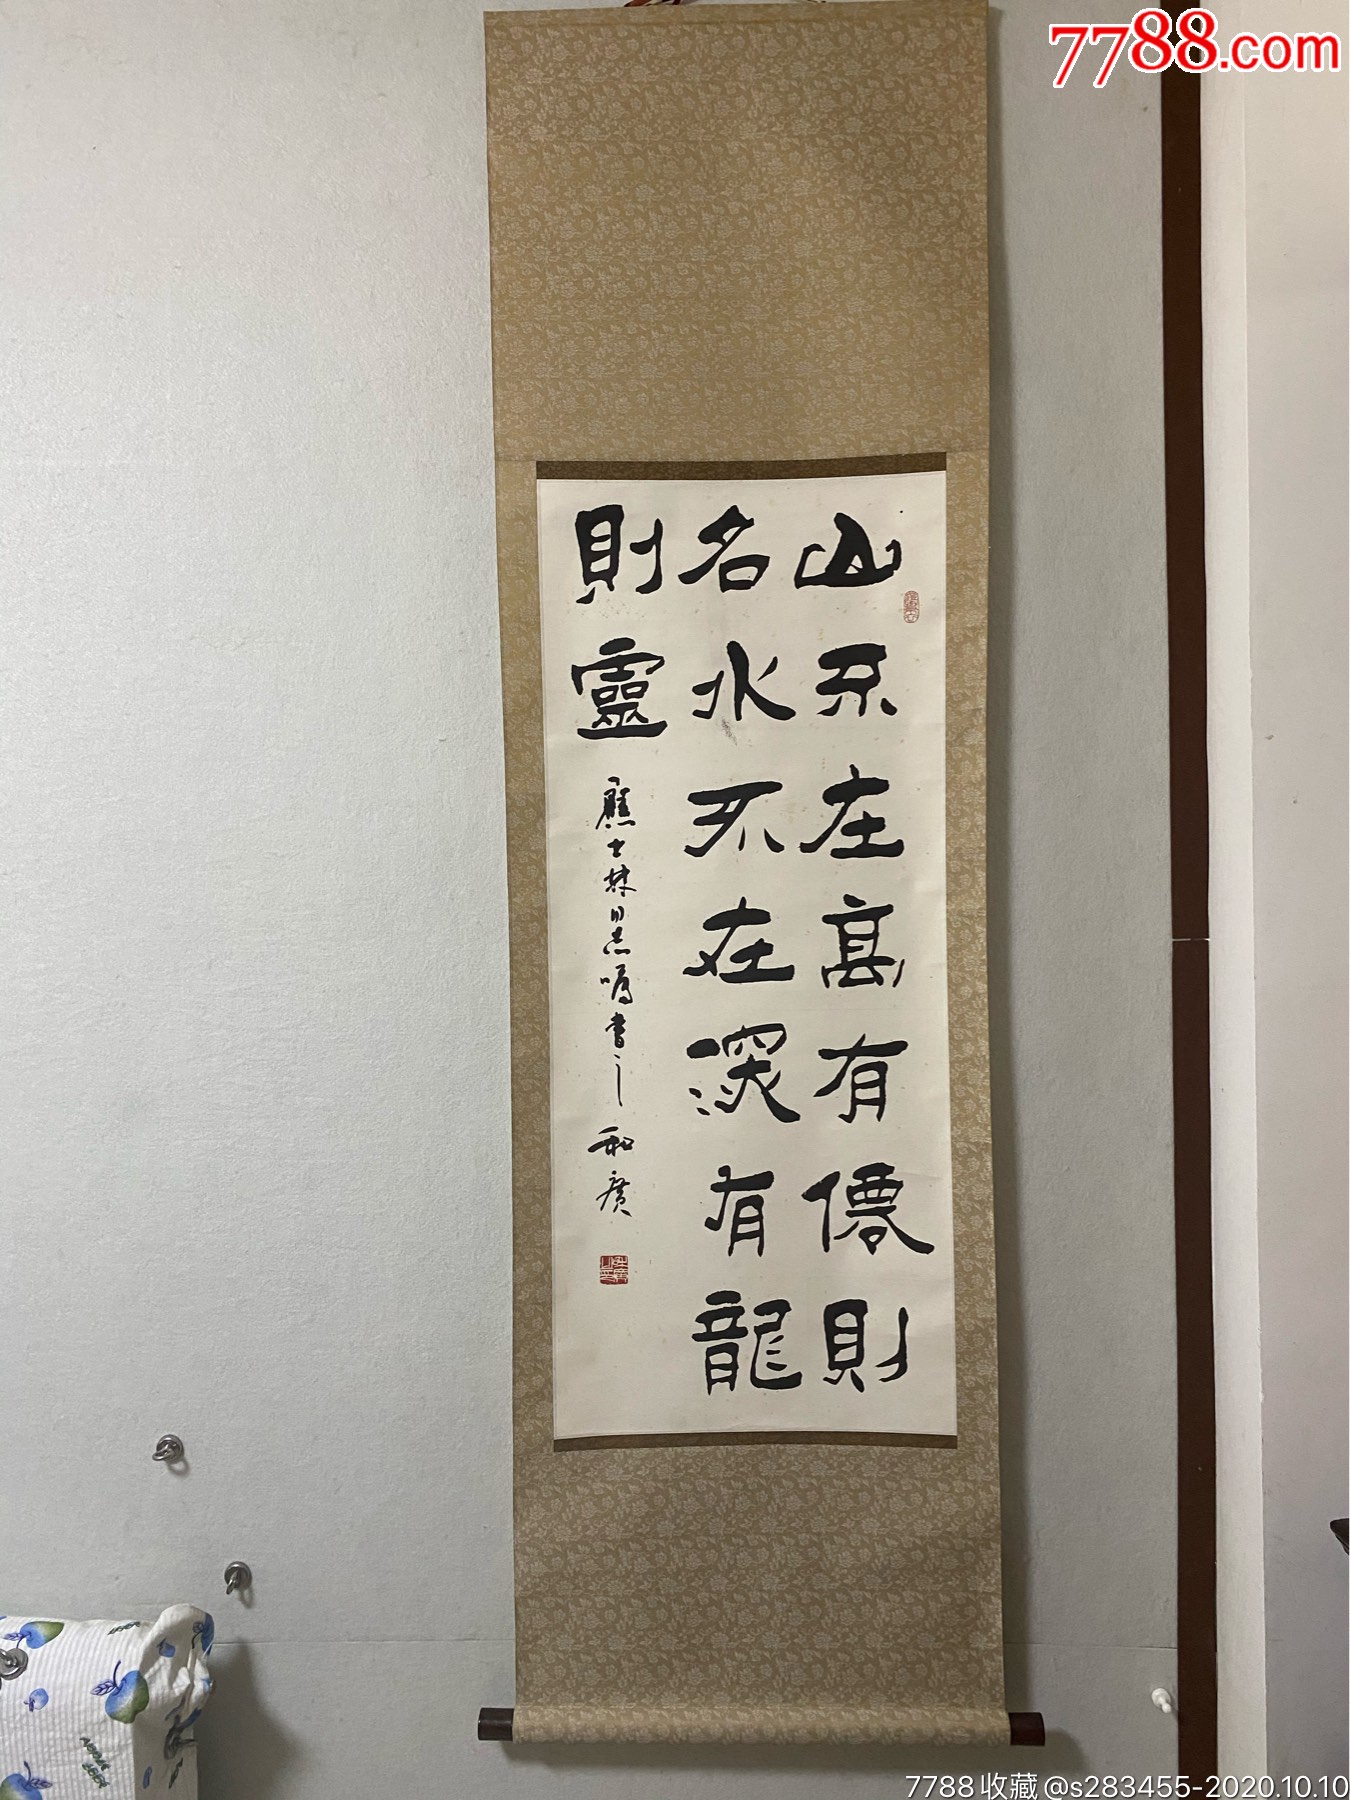 7788.com
山不在高有僊則
名水不在深有龍
則靈
應士林同志囑書之 和廣
7788收藏@s283455-2020.10.10